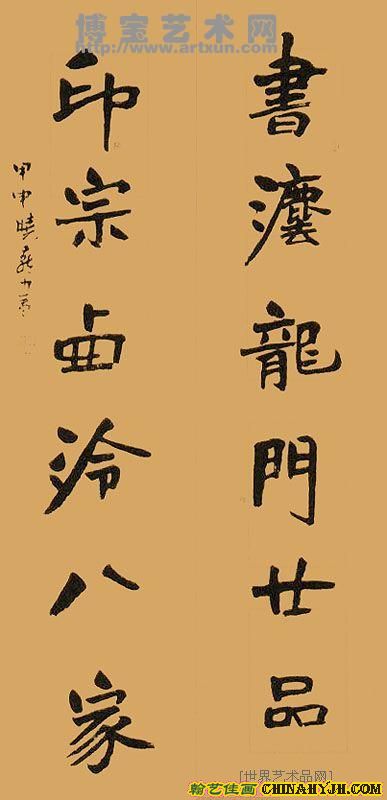 博宝艺术网
http://www.artxun.com
書灋龍門廿品
印宗卥泠八家
甲申曉
[世界艺术品网]
翰艺佳画 CHINAHYJH.COM